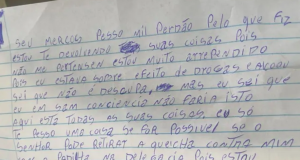 Seu merceos Pesso mil Perdão Pelo que Fiz
estou te Devolvendo suas coisas Pois
não me Pertensem estou muito arrependido
Pois eu estava sobre efeito de Drogas e Alcou
sei que não é Desculpa mas eu sei que
eu em sam conciencia não faria isto
Aqui esta todas as suas coisas, eu só
Te Pesso uma coisa se for Possivel se o
senhor Pode Retirar a queicha contra mim
na Delegacia Pois estou